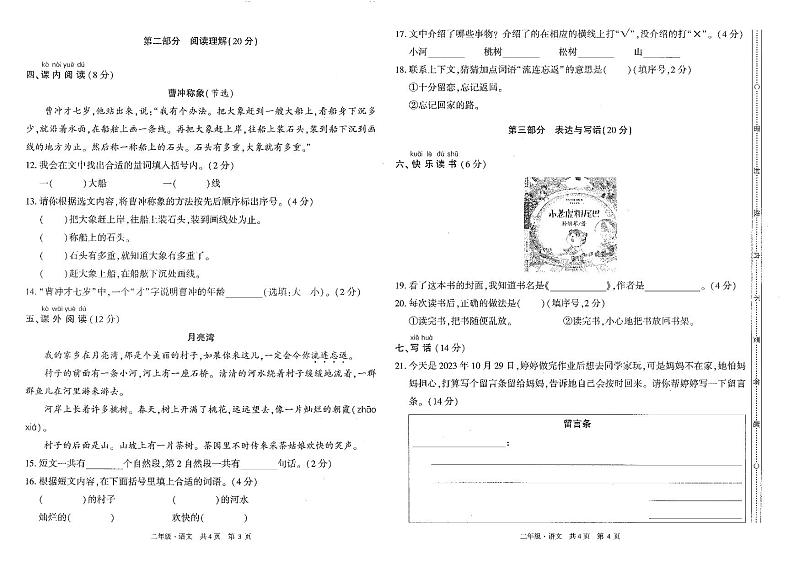 第二部分 阅读理解(20分)
kè nèi yuè dú
四、课内阅读(8分)
曹冲称象(节选)
曹冲才七岁,他站出来,说:“我有个办法。把大象赶到一艘大船上,看船身下沉多
少,就沿着水面,在船舷上画一条线。再把大象赶上岸,往船上装石头,装到船下沉到画
线的地方为止。然后称一称船上的石头。石头有多重,大象就有多重。”
12.我会在文中找出合适的量词填入括号内。(2分)
一( )大船 一( )线
13.请你根据选文内容,将曹冲称象的方法按先后顺序标出序号。(4分)
( )把大象赶上岸,往船上装石头,装到画线处为止。
( )称船上的石头。
( )石头有多重,就知道大象有多重了。
( )赶大象上船,在船舷下沉处画线。
14.“曹冲才七岁”中,一个“才”字说明曹冲的年龄 (选填:大 小)。(2分)
kè wài yuè dú
五、课外阅读(12分)
月亮湾
我的家乡在月亮湾,那是个美丽的村子,如果你来这儿,一定会令你流连忘返。
村子的前面有一条小河,河上有一座石桥。清清的河水绕着村子缓缓地流着,一群
群鱼儿在河里游来游去。
河岸上长着许多桃树。春天,树上开满了桃花,远远望去,像一片灿烂的朝霞(zhāo
xiá)。
村子的后面是山。山坡上有一片茶树。茶园里不时传来采茶姑娘欢快的笑声。
15.短文一共有 个自然段,第2自然段一共有 句话。(2分)
16.根据短文内容,在下面括号里填上合适的词语。(4分)
( )的村子 ( )的河水
灿烂的( ) 欢快的( )
二年级·语文 共4页 第3页
17.文中介绍了哪些事物?介绍了的在相应的横线上打“√”,没介绍的打“×”。(4分)
小河 桃树 松树 山
18.联系上下文,猜猜加点词语“流连忘返”的意思是( )(填序号,2分)
①十分留恋,忘记返回。
②忘记回家的路。
第三部分 表达与写话(20分)
kuài lè dú shū
六、快乐读书(6分)
小老虎和尾巴
19.看了这本书的封面,我知道书名是《 》,作者是 。(4分)
20.每次读书后,正确的做法是( )(填序号,2分)
①读完书,把书随便乱放。 ②读完书,小心地把书放回书架。
xiě huà
七、写话(14分)
21.今天是2023年10月29日,婷婷做完作业后想去同学家玩,可是妈妈不在家,她怕妈
妈担心,打算写个留言条留给妈妈,告诉她自己会按时回来。请你帮婷婷写一下留言
条。(14分)
留言条
:
二年级·语文 共4页 第4页